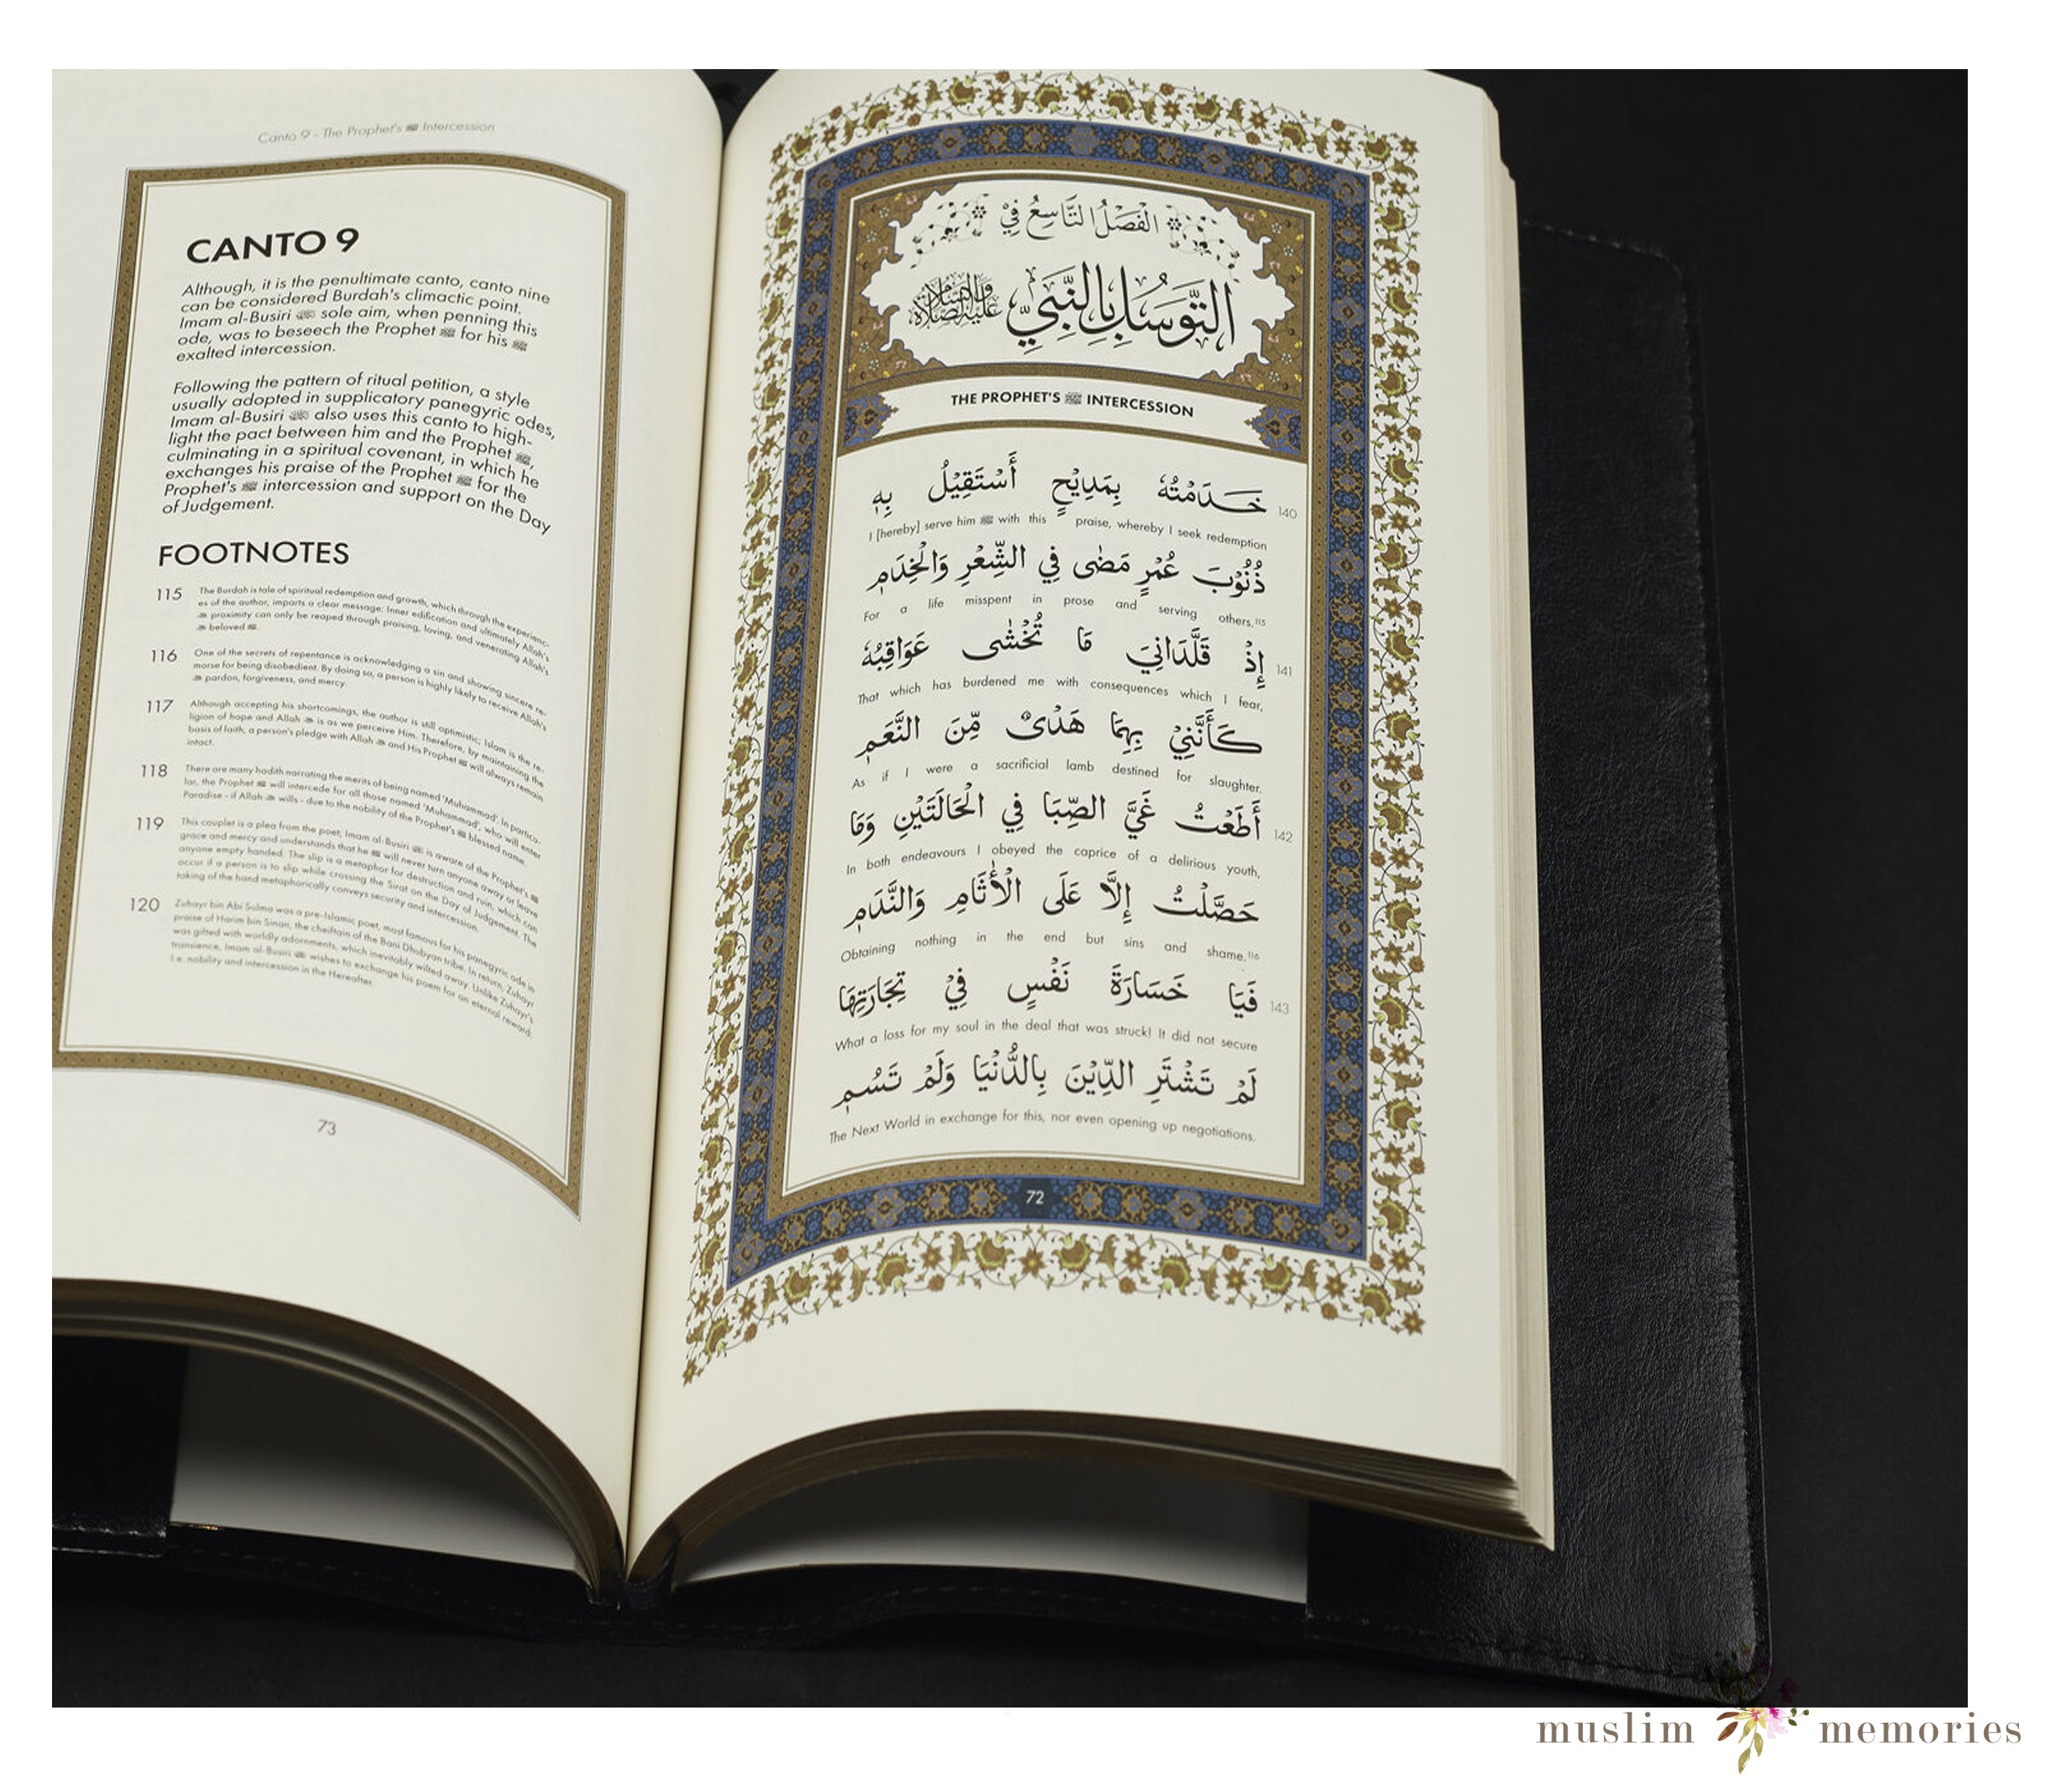 Canto 9 - The Prophet's ﷺ Intercession
CANTO 9
Although, it is the penultimate canto, canto nine
can be considered Burdah's climactic point.
Imam al-Busiri sole aim, when penning this
ode, was to beseech the Prophet ﷺ for his ﷺ
exalted intercession.
Following the pattern of ritual petition, a style
usually adopted in supplicatory panegyric odes,
Imam al-Busiri also uses this canto to high-
light the pact between him and the Prophet ﷺ,
culminating in a spiritual covenant, in which he
exchanges his praise of the Prophet ﷺ for the
Prophet's ﷺ intercession and support on the Day
of Judgement.
FOOTNOTES
115 The Burdah is tale of spiritual redemption and growth, which through the experienc-
es of the author, imparts a clear message: Inner edification and ultimately Allah's
proximity can only be reaped through praising, loving, and venerating Allah's
beloved ﷺ.
116 One of the secrets of repentance is acknowledging a sin and showing sincere re-
morse for being disobedient. By doing so, a person is highly likely to receive Allah's
pardon, forgiveness, and mercy.
117 Although accepting his shortcomings, the author is still optimistic; Islam is the re-
ligion of hope and Allah is as we perceive Him. Therefore, by maintaining the
basis of faith, a person's pledge with Allah and His Prophet ﷺ will always remain
intact.
118 There are many hadith narrating the merits of being named 'Muhammad'. In particu-
lar, the Prophet ﷺ will intercede for all those named 'Muhammad', who will enter
Paradise - if Allah wills - due to the nobility of the Prophet's ﷺ blessed name.
119 This couplet is a plea from the poet; Imam al-Busiri is aware of the Prophet's ﷺ
grace and mercy and understands that he ﷺ will never turn anyone away or leave
anyone empty handed. The slip is a metaphor for destruction and ruin, which can
occur if a person is to slip while crossing the Sirat on the Day of Judgement. The
taking of the hand metaphorically conveys security and intercession.
120 Zuhayr bin Abi Sulma was a pre-Islamic poet, most famous for his panegyric ode in
praise of Harim bin Sinan, the cheiftain of the Bani Dhubyan tribe. In return, Zuhayr
was gifted with worldly adornments, which inevitably wilted away. Unlike Zuhayr's
transience, Imam al-Busiri wishes to exchange his poem for an eternal reward.
I.e. nobility and intercession in the Hereafter.
73
الْفَصْلُ التَّاسِعُ فِيْ
التَّوَسُّلِ بِالنَّبِيِّ عَلَيْهِ الصَّلَاةُ وَالسَّلَامُ
THE PROPHET'S ﷺ INTERCESSION
خَدَمْتُهٗ بِمَدِيْحٍ أَسْتَقِيْلُ بِهٖ 140
I [hereby] serve him ﷺ with this praise, whereby I seek redemption
ذُنُوْبَ عُمْرٍ مَضٰى فِي الشِّعْرِ وَالْخِدَمِ
For a life misspent in prose and serving others.115
إِذْ قَلَّدَانِيَ مَا تُخْشٰى عَوَاقِبُهٗ 141
That which has burdened me with consequences which I fear,
كَأَنَّنِيْ بِهِمَا هَدْىٌ مِّنَ النَّعَمِ
As if I were a sacrificial lamb destined for slaughter.
أَطَعْتُ غَيَّ الصِّبَا فِي الْحَالَتَيْنِ وَمَا 142
In both endeavours I obeyed the caprice of a delirious youth,
حَصَّلْتُ إِلَّا عَلَى الْأٰثَامِ وَالنَّدَمِ
Obtaining nothing in the end but sins and shame.116
فَيَا خَسَارَةَ نَفْسٍ فِيْ تِجَارَتِهَا 143
What a loss for my soul in the deal that was struck! It did not secure
لَمْ تَشْتَرِ الدِّيْنَ بِالدُّنْيَا وَلَمْ تَسُمِ
The Next World in exchange for this, nor even opening up negotiations.
72
muslim memories